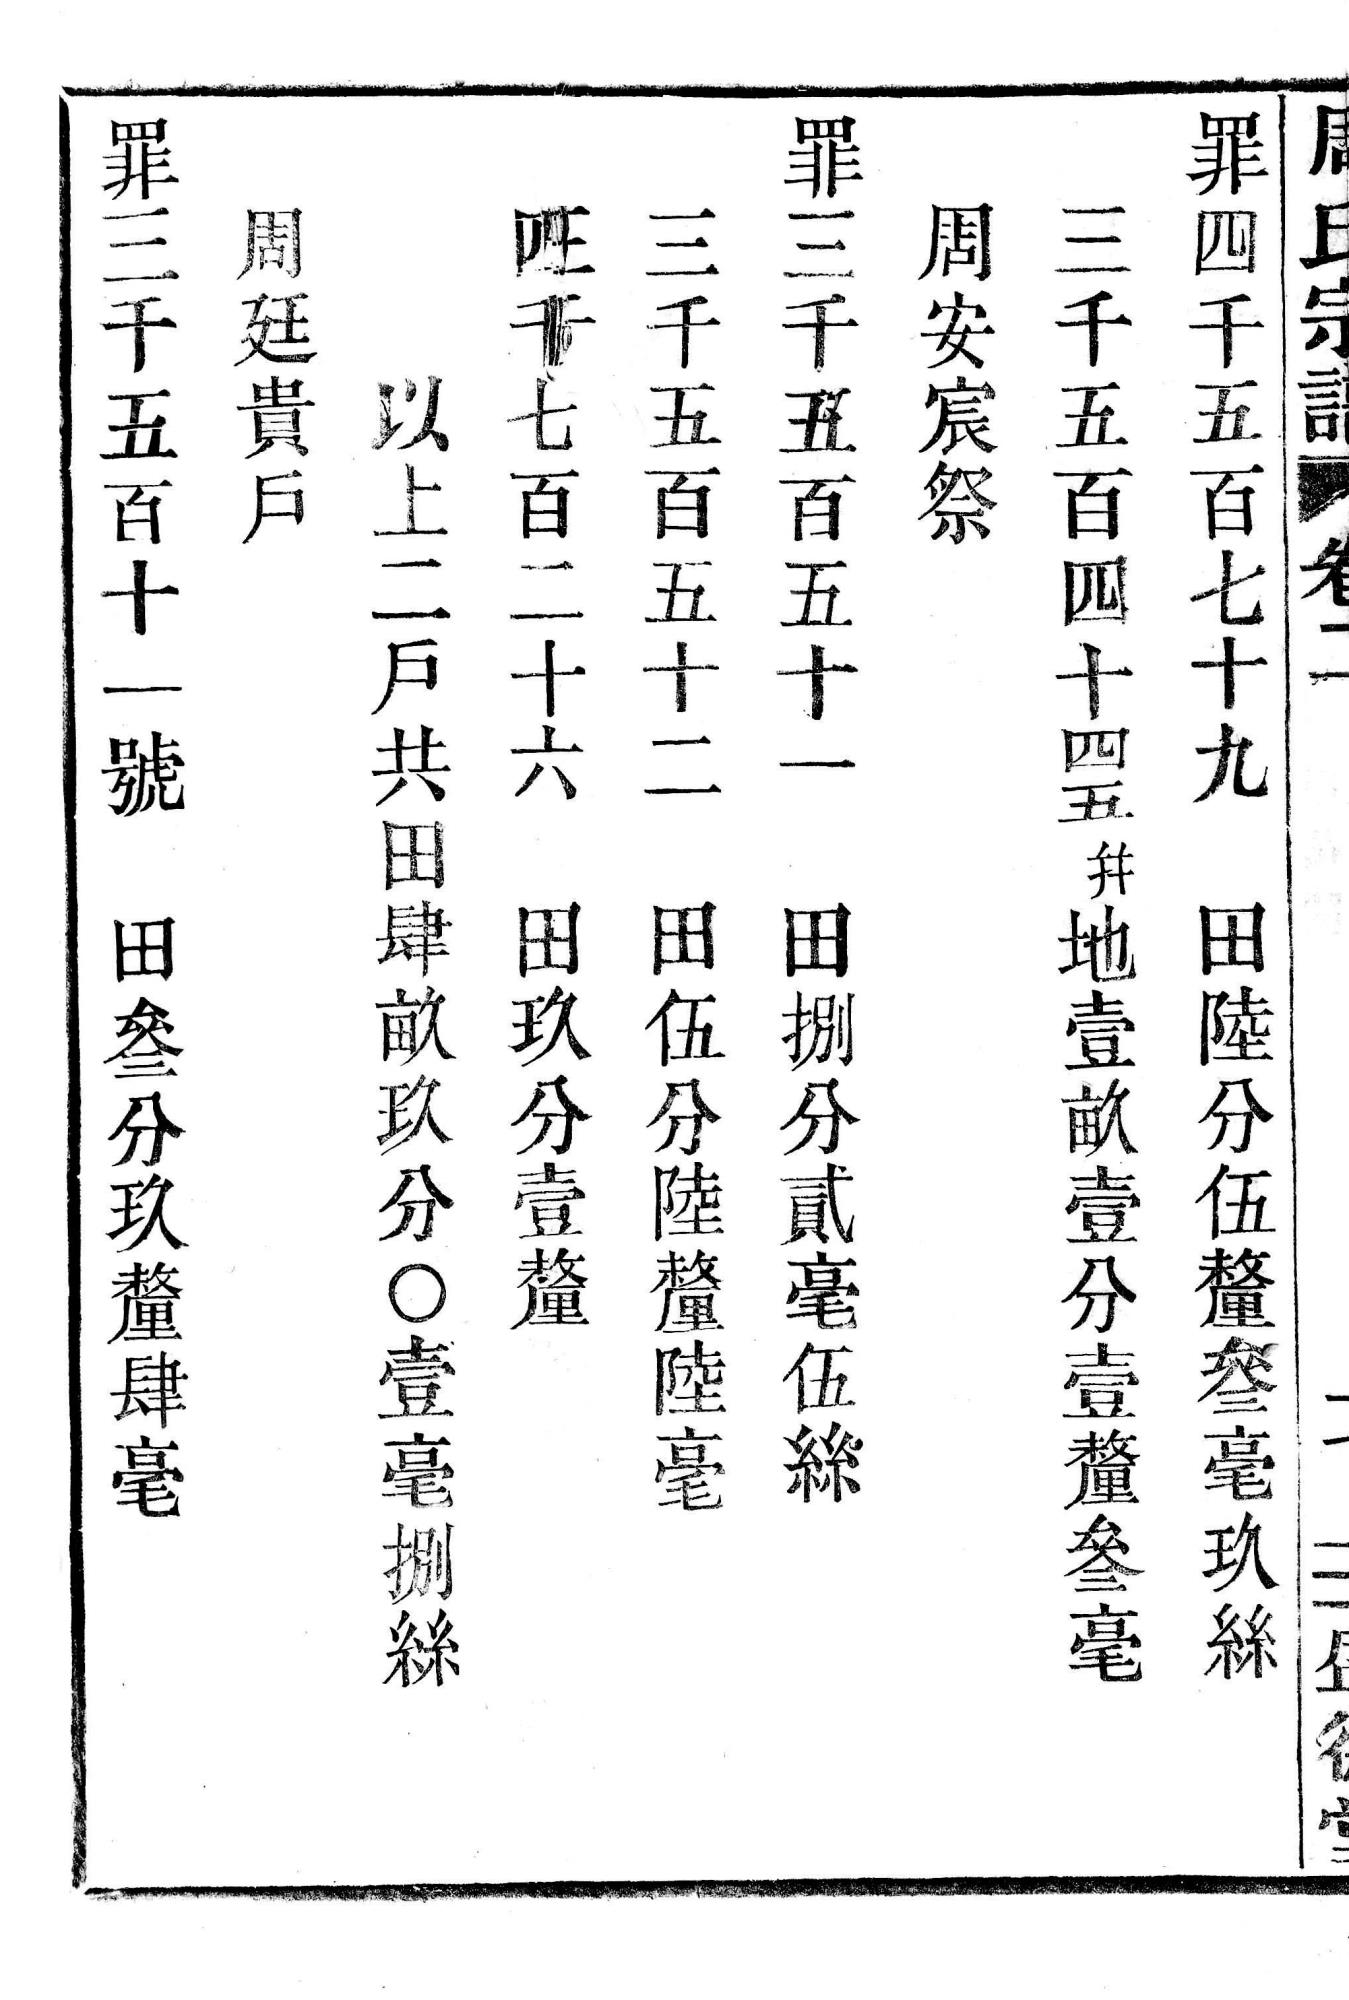 周氏宗譜 卷二
罪四千五百七十九 田陸分伍釐叄毫玖絲
三千五百四十四五幷地壹畝壹分壹釐叄毫
周安宸祭
罪三千五百五十一 田捌分貳毫伍絲
三千五百五十二 田伍分陸釐陸毫
四千七百二十六 田玖分壹釐
以上二戶共田肆畝玖分〇壹毫捌絲
周廷貴戶
罪三千五百十一號 田叄分玖釐肆毫